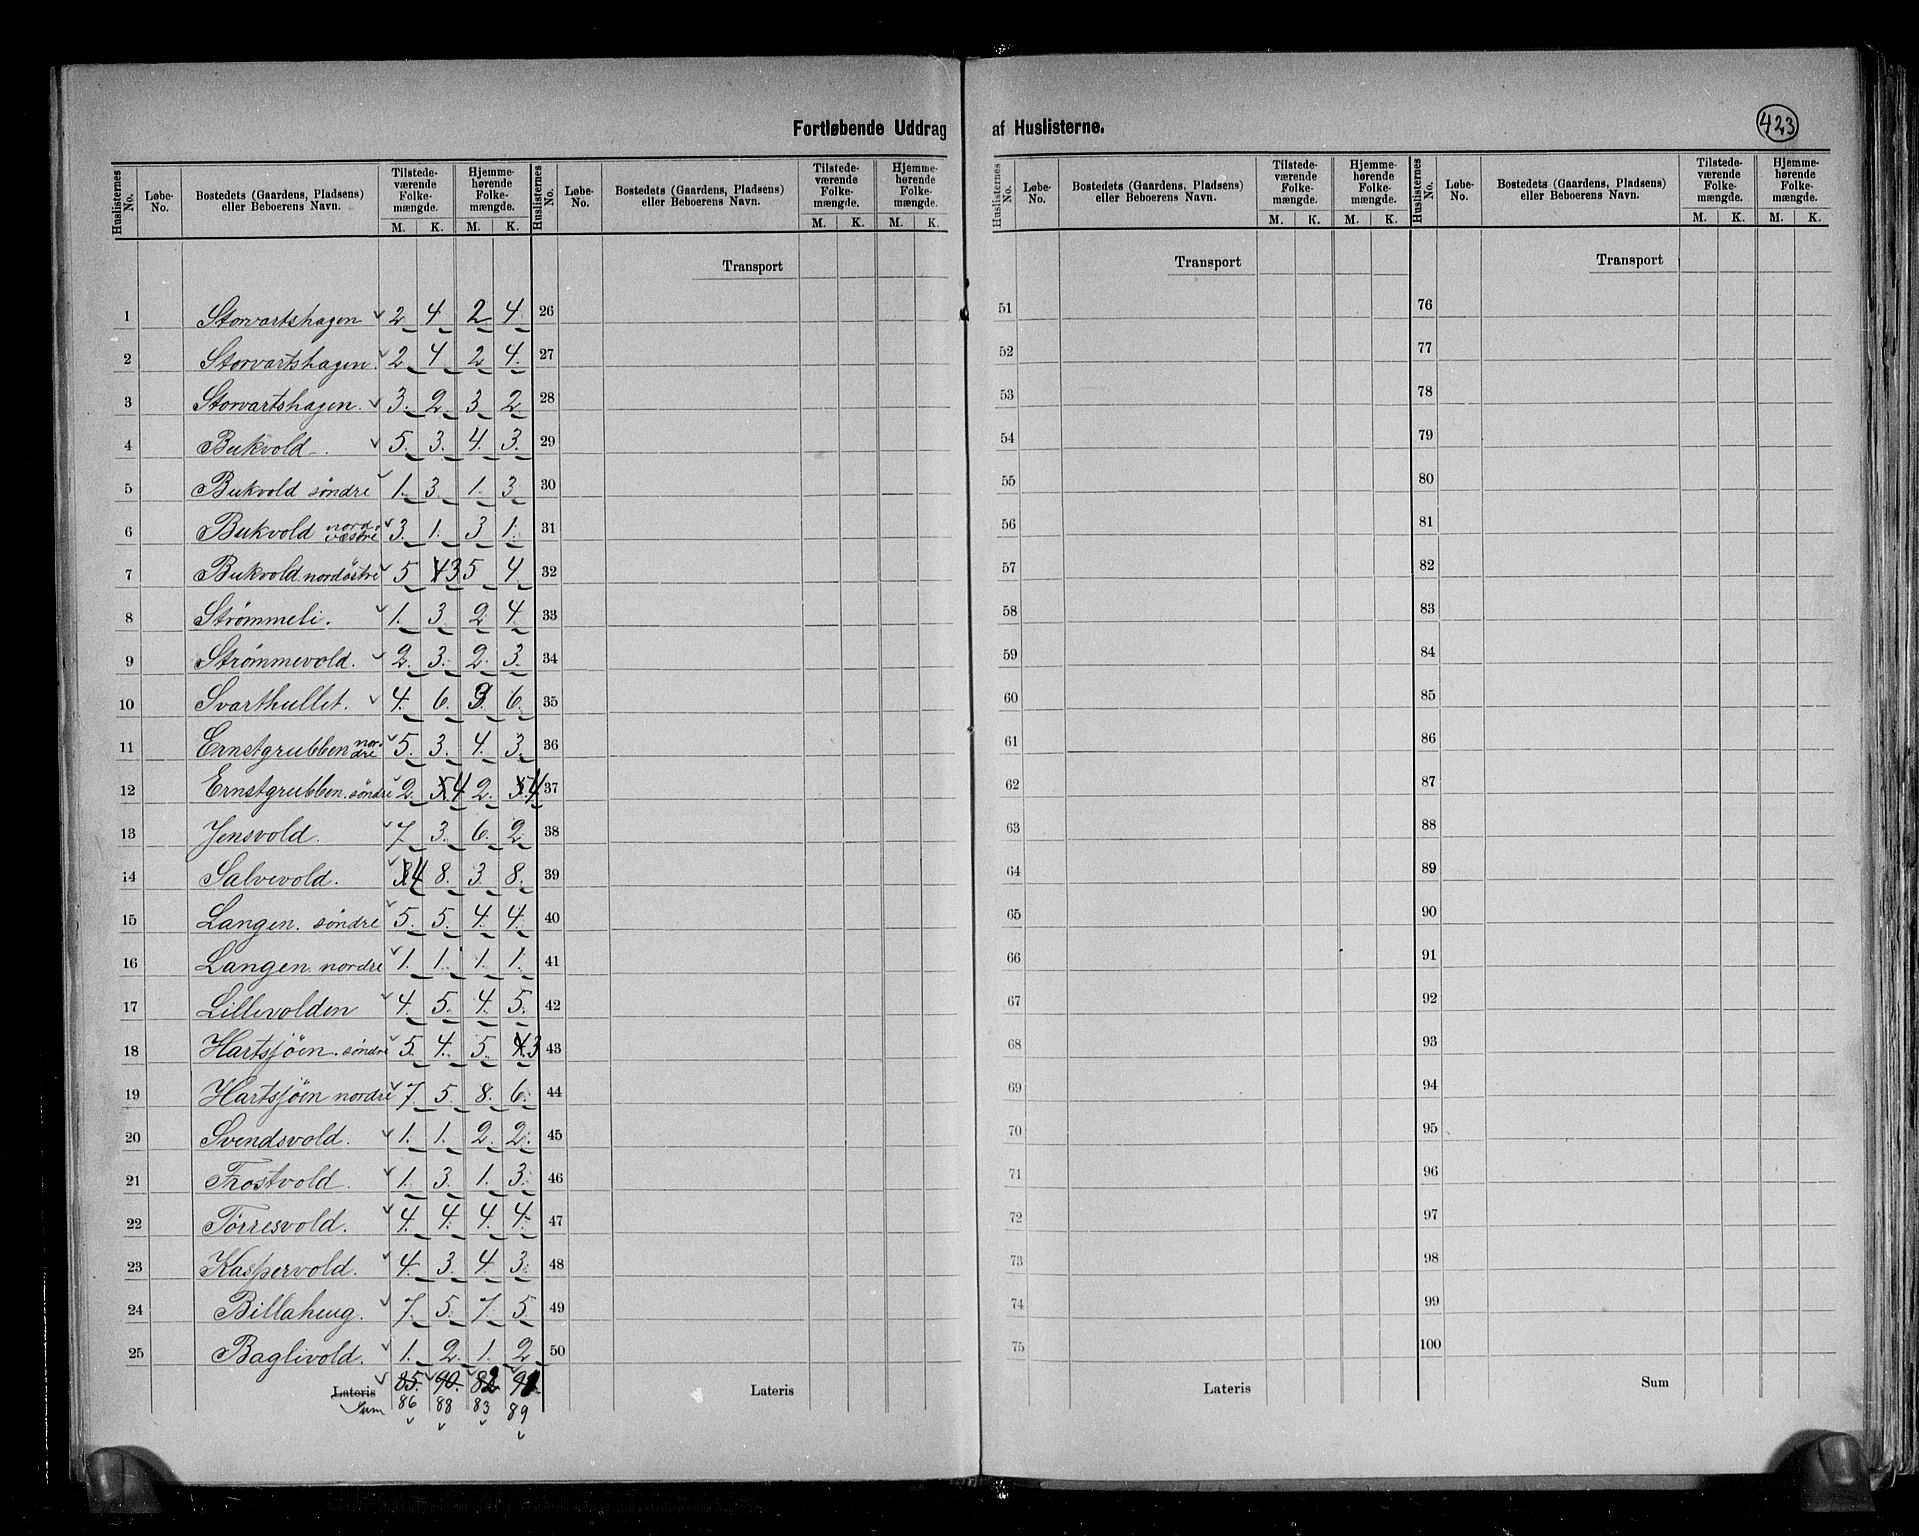 Fortløbende Uddrag af Huslisterne.
423
Huslisternes No. | Løbe-No. | Bostedets (Gaardens, Pladsens) eller Beboerens Navn. | Tilstedeværende Folkemængde. M. K. | Hjemmehørende Folkemængde. M. K.
Huslisternes No. | Løbe-No. | Bostedets (Gaardens, Pladsens) eller Beboerens Navn. | Tilstedeværende Folkemængde. M. K. | Hjemmehørende Folkemængde. M. K.
Huslisternes No. | Løbe-No. | Bostedets (Gaardens, Pladsens) eller Beboerens Navn. | Tilstedeværende Folkemængde. M. K. | Hjemmehørende Folkemængde. M. K.
Huslisternes No. | Løbe-No. | Bostedets (Gaardens, Pladsens) eller Beboerens Navn. | Tilstedeværende Folkemængde. M. K. | Hjemmehørende Folkemængde. M. K.
Transport Transport Transport
1 Storvartshagen 2 4 2 4 26 51 76
2 Storvartshagen. 2 4 2 4. 27 52 77
3 Storvartshagen. 3. 2 3 2 28 53 78
4 Bukvold. 5. 3. 4. 3. 29 54 79
5 Bukvold söndre 1. 3 1. 3 30 55 80
6 Bukvold nordvestre 3. 1. 3 1. 31 56 81
7 Bukvold nordöstre 5 4 3 5 4 32 57 82
8 Strømmeli. 1. 3 2 4. 33 58 83
9 Strømmevold. 2. 3. 2. 3. 34 59 84
10 Svarthullet. 4. 6. 3. 6. 35 60 85
11 Ernstgrubben nordre 5. 3. 4. 3. 36 61 86
12 Ernstgrubben. söndre 2. 5. 4 2. 5. 4 37 62 87
13 Jensvold. 7. 3. 6. 2. 38 63 88
14 Salvevold. 3 4 8. 3. 8. 39 64 89
15 Langen. söndre 5. 5. 4. 4. 40 65 90
16 Langen. nordre 1. 1. 1. 1. 41 66 91
17 Lillevolden 4. 5. 4. 5. 42 67 92
18 Hartsjöen. söndre 5. 4. 5. 4. 3 43 68 93
19 Hartsjöen nordre 7. 5. 8. 6. 44 69 94
20 Svendsvold. 1. 1. 2. 2. 45 70 95
21 Trostvold. 1. 3. 1. 3. 46 71 96
22 Törresvold. 4. 4. 4. 4. 47 72 97
23 Kaspervold. 4. 3. 4. 3. 48 73 98
24 Billaheug. 7. 5. 7. 5 49 74 99
25 Baglivold. 1. 2. 1. 2 50 75 100
Lateris 85. 90. 82 91 Lateris Lateris Sum
Sum 86 88 83 89